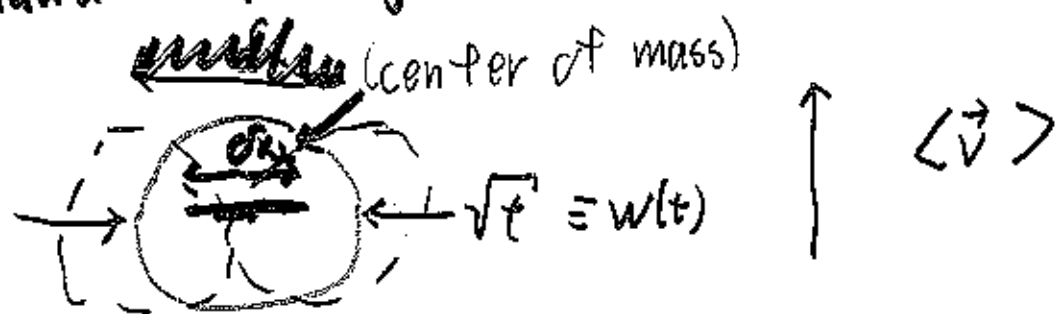 (center of mass)
δx
⟨v⃗⟩
√t ≡ w(t)